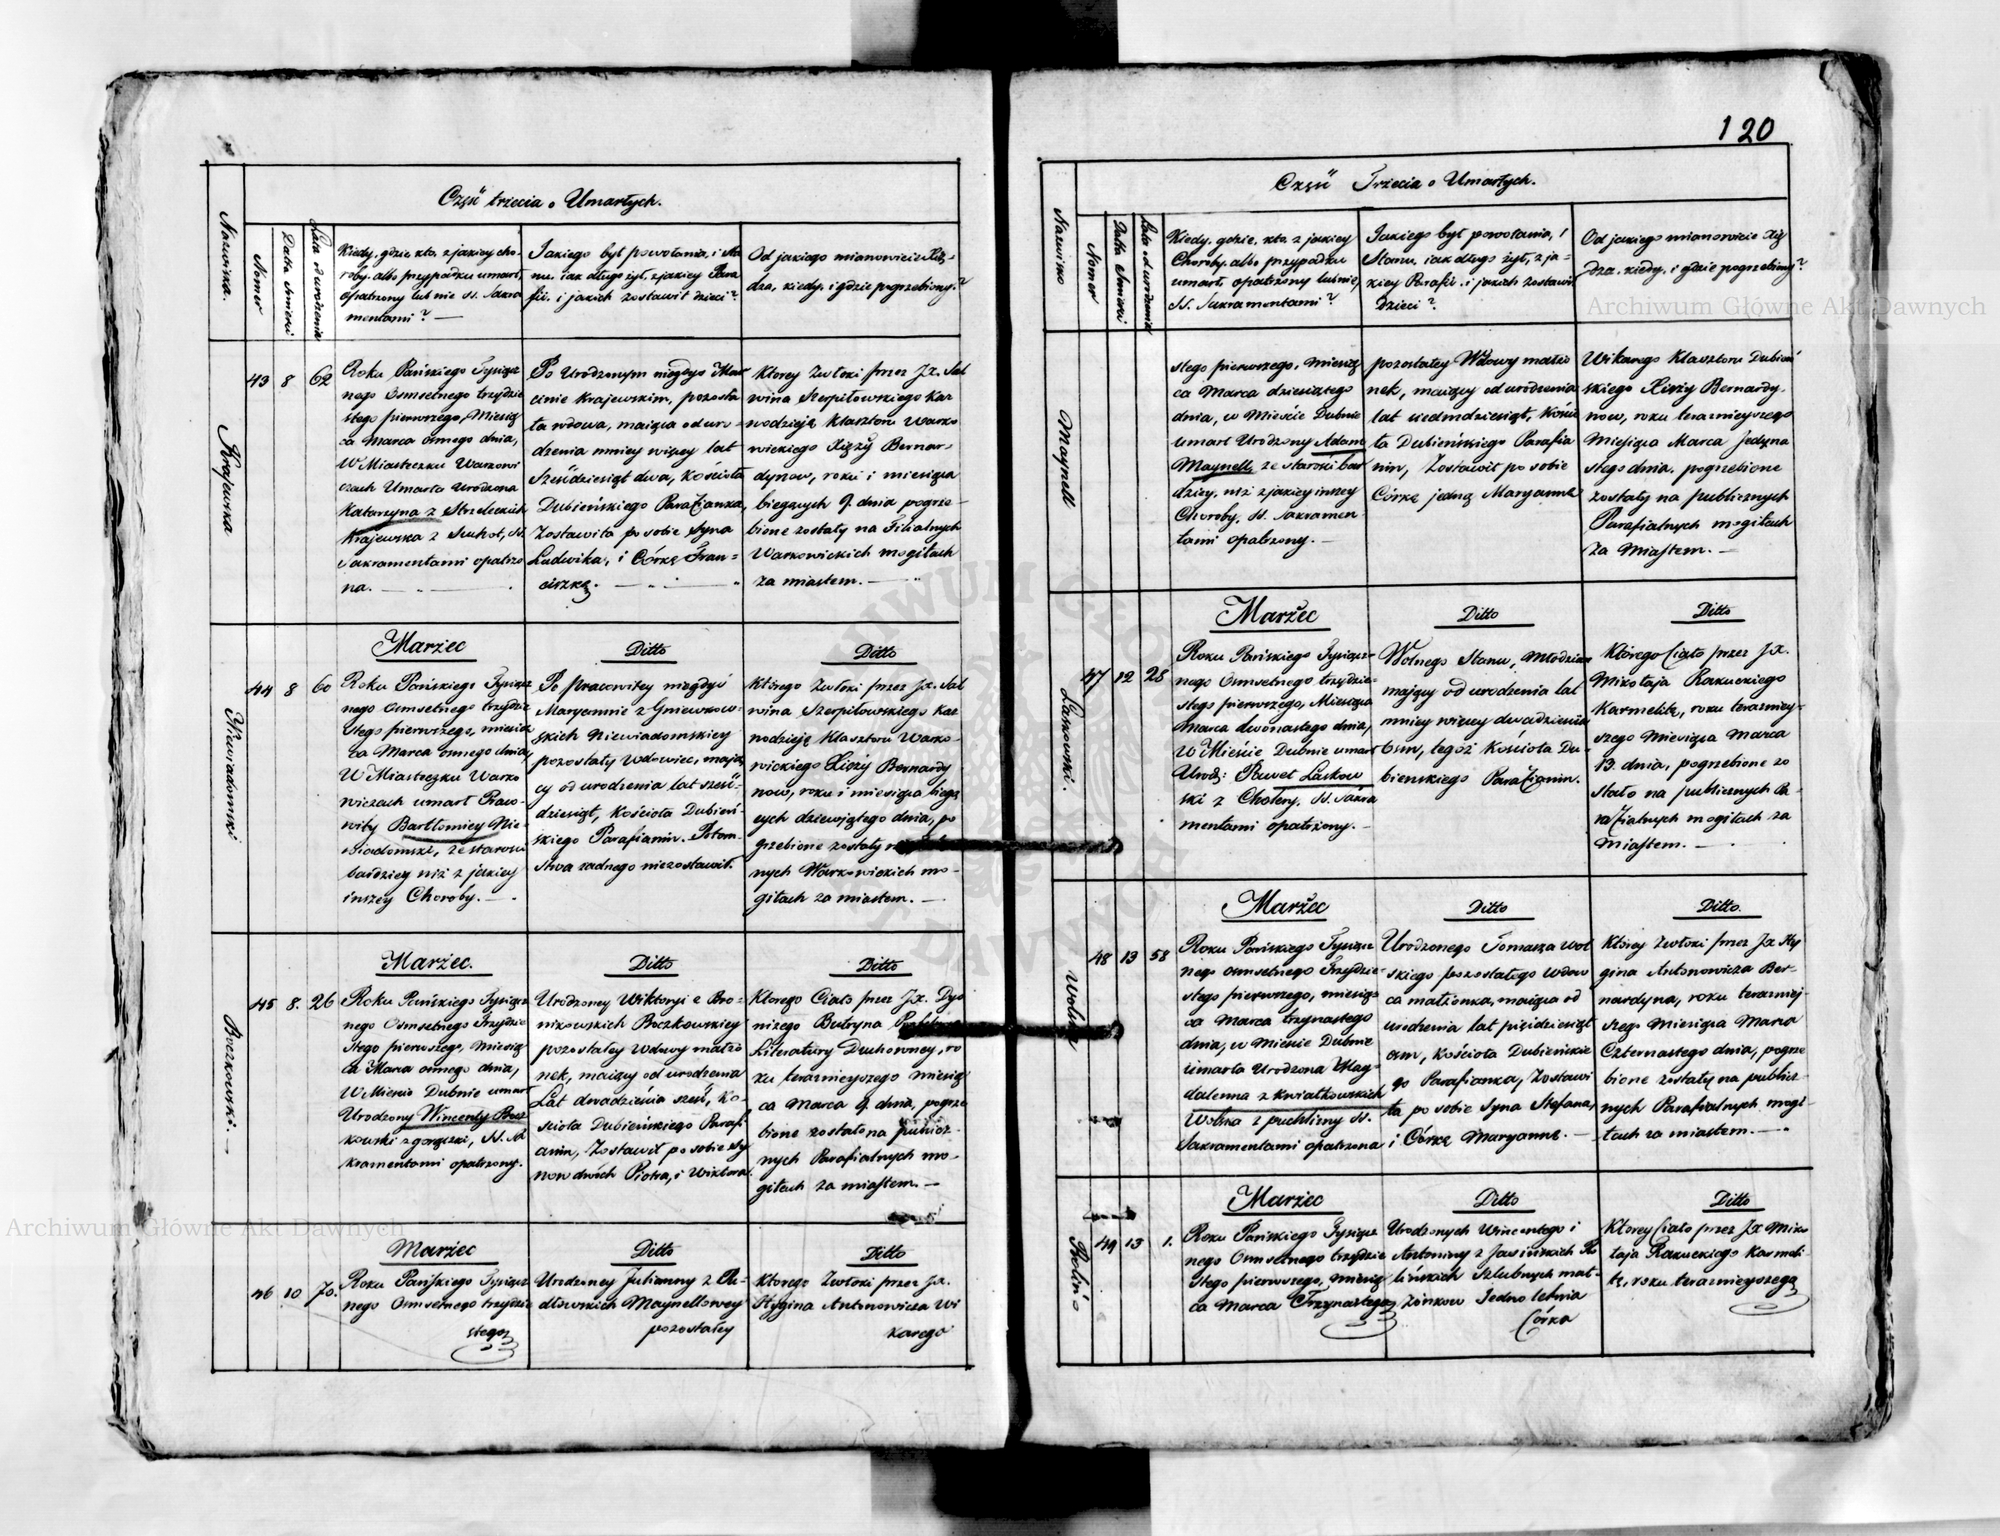 Część trzecia o Umarłych.
Nazwiska.
Numer
Datta Smierci
Lata od urodzenia
Kiedy, gdzie, kto, z jakiey cho-
roby, albo przypadku umarł,
opatrzony lub nie SS. Sakra
mentami? —
Jakiego był powołania, i sta
nu, iak długo żył, z jakiey Para
fii, i jakich zostawił dzieci?
Od jakiego mianowicie Xię-
dza, kiedy, i gdzie pogrzebiony?
Krajewska
43 8 62
Roku Pańskiego Tysiącz
nego Osmsetnego trzydzie
stego pierwszego, Miesią
ca Marca osmego dnia,
W Miasteczku Warkowi
czach Umarła Urodzona
Katarzyna z Strzeleckich
Krajewska z Suchot, SS.
Sakramentami opatrzo
na. —
Po Urodzonym niegdyś Mar
cinie Krajewskim, pozosta
ła wdowa, maiąca od uro-
dzenia mniey więcey lat
Sześćdziesiąt dwa, Kościoła
Dubieńskiego Parafianka,
Zostawiła po sobie Syna
Ludwika, i Córkę Fran-
ciszkę. —
Ktorey Zwłoki przez Jx. Sal
wina Szerpiłowskiego Kaz
nodzieję Klasztoru Warko
wickiego Xięży Bernar-
dynow, roku i miesiąca
bieżących 9. dnia pogrze-
bione zostały na Filialnych
Warkowickich mogiłach
za miastem. —
Marzec
Ditto
Ditto
Niewiadomski
44 8 60
Roku Pańskiego Tysiącz
nego Osmsetnego trzydzie
stego pierwszego, miesią
ca Marca osmego dnia,
W Miasteczku Warko
wiczach umarł Praco-
wity Bartłomiey Nie-
wiadomski, ze starości
bardziey niż z jakiey
inszey Choroby. —
Po Pracowitey niegdyś
Maryannie z Gniewkow-
skich Niewiadomskiey
pozostały wdowiec, mają
cy od urodzenia lat sześć-
dziesiąt, Kościoła Dubień-
skiego Parafianin. Potom-
stwa żadnego niezostawił.
Którego Zwłoki przez Jx. Sal
wina Szerpiłowskiego Kaz
nodzieję Klasztoru Warko-
wickiego Xięży Bernardy
now, roku i miesiąca bieżą
cych dziewiątego dnia, po
grzebione zostały
nych Warkowickich mo-
giłach za miastem. —
Marzec.
Ditto
Ditto
Boczkowski.
45 8. 26
Roku Pańskiego Tysiącz
nego Osmsetnego Trzydzie
stego pierwszego, Miesią
ca Marca osmego dnia,
W Miescie Dubnie umarł
Urodzony Wincenty Bocz
kowski z gorączki, SS. Sa
kramentami opatrzony.
Urodzoney Wiktoryi z Bro-
nikowskich Boczkowskiey
pozostałey Wdowy małżo
nek, maiący od urodzenia
Lat dwadzieścia sześć, Ko-
ścioła Dubieńskiego Parafi
anin, Zostawił po sobie Sy
now dwóch Piotra, i Wiktora.
Ktorego Ciało przez Jx. Dyo
nizego Butryna
Literatury Duchowney, ro
ku teraznieyszego miesią
ca Marca 9. dnia, pogrze
bione zostało na publicz-
nych Parafialnych mo-
giłach za miastem. —
Marzec
Ditto
Ditto
46 10 70.
Roku Pańskiego Tysiącz
nego Osmsetnego trzydzie
stego
Urodzoney Julianny z Pu-
dłowskich Maynellowey
pozostałey
Ktorego Zwłoki przez Jx.
Hygina Antonowicza Wi
karego
120
Część Trzecia o Umarłych.
Nazwisko
Numer
Datta Smierci
Lata od urodzenia
Kiedy, gdzie, kto, z jakiey
Choroby, albo przypadku
umarł, opatrzony lub nie,
SS. Sakramentami?
Jakiego był powołania, i
Stanu, iak długo żył, z ja-
kiey Parafii, i jakich zostawił
Dzieci?
Od jakiego mianowicie Xię
dza, kiedy, i gdzie pogrzebiony?
Maynell
stego pierwszego, miesią
ca Marca dziesiątego
dnia, w Mieście Dubnie
umarł Urodzony Adam
Maynell, ze starości bar
dziey, niż z jakiey inszey
Choroby, SS. Sakramen-
tami opatrzony. —
pozostałey Wdowy małżo
nek, maiący od urodzenia
lat siedmdziesiąt, Kościo
ła Dubieńskiego Parafia
nin, Zostawił po sobie
Córkę jedną Maryannę
Wikarego Klasztoru Dubień
skiego Xięży Bernardy-
now, roku teraznieyszego
Miesiąca Marca Jedyna
stego dnia, pogrzebione
zostały na publicznych
Parafialnych mogiłach
za Miastem. —
Marzec
Ditto
Ditto
Laskowski.
47 12 28
Roku Pańskiego Tysiącz-
nego Osmsetnego trzydzie-
stego pierwszego, Miesiąca
Marca dwonastego dnia,
W Mieście Dubnie umarł
Urodz: Paweł Laskow
ski z Cholery, SS. Sakra
mentami opatrzony. —
Wolnego Stanu, Młodzian
mający od urodzenia lat
mniey więcey dwadzieścia
Osm, tegoż Kościoła Du-
bienskiego Parafianin.
Którego Ciało przez Jx.
Mikołaja Rakuckiego
Karmelitę, roku terazniey-
szego Miesiąca Marca
13. dnia, pogrzebione zo
stało na publicznych Pa-
rafialnych mogiłach za
Miastem. —
Marzec
Ditto
Ditto.
Wolska
48 13 58
Roku Pańskiego Tysiącz
nego osmsetnego Trzydzie-
stego pierwszego, miesią-
ca Marca trzynastego
dnia, w Mieście Dubnie
umarła Urodzona Mag-
dalenna z Kwiatkowskich
Wolska z puchliny SS.
Sakramentami opatrzona
Urodzonego Tomasza Wol
skiego pozostałego Wdow
ca małżonka, maiąca od
urodzenia lat pięćdziesiąt
osm, Kościoła Dubieńskie
go Parafianka, Zostawi
ła po sobie Syna Stefana,
i Córkę Maryannę. —
Ktorey Zwłoki przez Jx Hy
gina Antonowicza Ber-
nardyna, roku terazniej-
szego Miesiąca Marca
Czternastego dnia, pogrze
bione zostały na publicz-
nych Parafialnych mogi-
łach za miastem. —
Marzec
Ditto
Ditto
49 13 1.
Roku Pańskiego Tysiącz
nego Osmsetnego trzydzie
stego pierwszego, miesią
ca Marca Trzynastego
Urodzonych Wincentego i
Antoniny z Jasińskich Ro
lińskich Szlubnych mał-
żonkow Jedno letnia
Córka
Ktorey Ciało przez Jx Miko
łaja Rakuckiego Karmeli-
tę, roku teraznieyszego
Archiwum Główne Akt Dawnych
Archiwum Główne Akt Dawnych